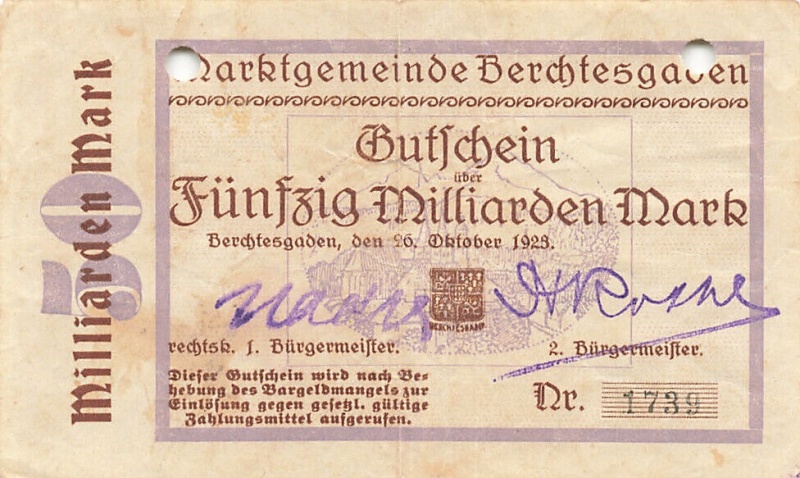 Marktgemeinde Berchtesgaden
Gutschein
über
Fünfzig Milliarden Mark
Berchtesgaden, den 26. Oktober 1923.
BERCHTESGADEN
rechtsk. 1. Bürgermeister.
2. Bürgermeister.
Dieser Gutschein wird nach Be-
hebung des Bargeldmangels zur
Einlösung gegen gesetzl. gültige
Zahlungsmittel aufgerufen.
Nr. 1739
50
Milliarden Mark